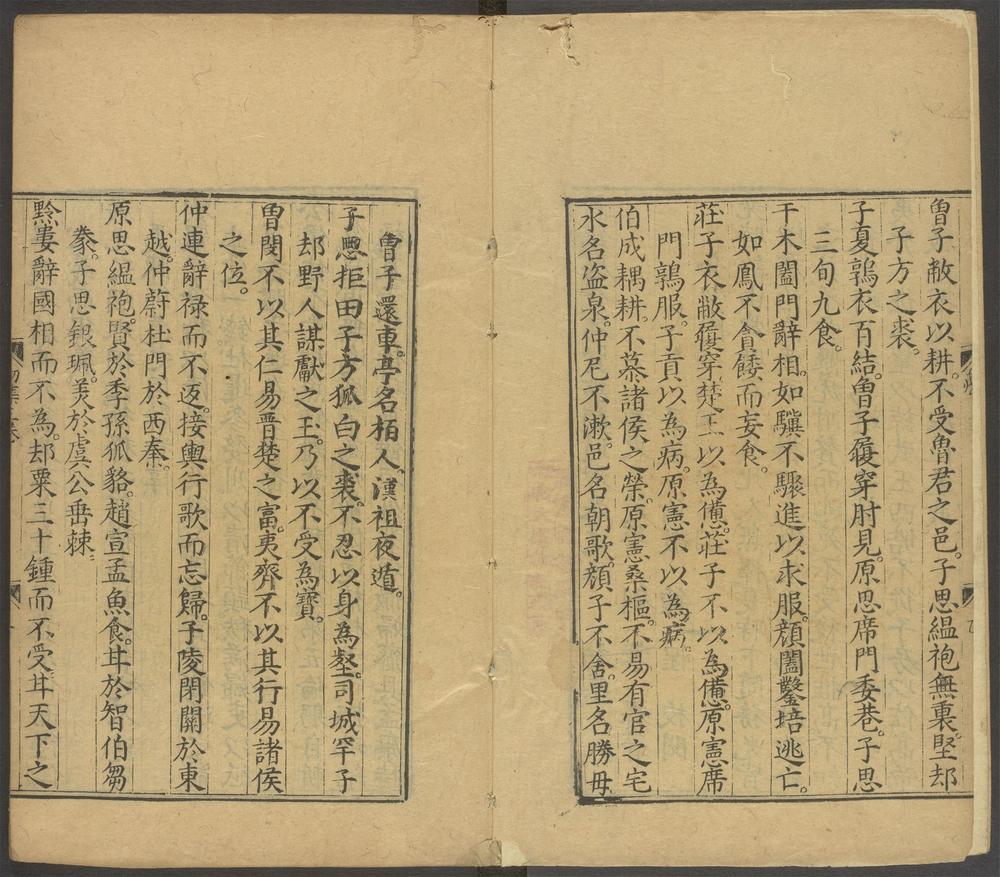 曾子敝衣以耕。不受魯君之邑。子思縕袍無裏。堅却
子方之裘。
子夏鶉衣百結。曾子履穿肘見。原思席門委巷。子思
三旬九食。
干木闔門辭相。如驥不驟進以求服。顏闔鑿培逃亡。
如鳳不貪餧而妄食。
莊子衣敝履穿。楚王以為憊。莊子不以為憊。原憲席
門鶉服。子貢以為病。原憲不以為病。
伯成耦耕。不慕諸侯之榮。原憲桑樞。不易有官之宅
水名盗泉。仲尼不漱。邑名朝歌。顏子不舍。里名勝母
曾子還車。亭名栢人。漢祖夜遁。
子思拒田子方狐白之裘。不忍以身為壑。司城罕子
却野人謀獻之玉。乃以不受為寳。
曾閔不以其仁易晋楚之富。夷齊不以其行易諸侯
之位。
仲連辭禄而不返。接輿行歌而忘歸。子陵閉關於東
越。仲蔚杜門於西秦。
原思縕袍。賢於季孫狐貉。趙宣孟魚食。甘於智伯芻
豢。子思銀珮。美於虞公垂棘。
黔婁辭國相而不為。却粟三十鍾而不受。甘天下之